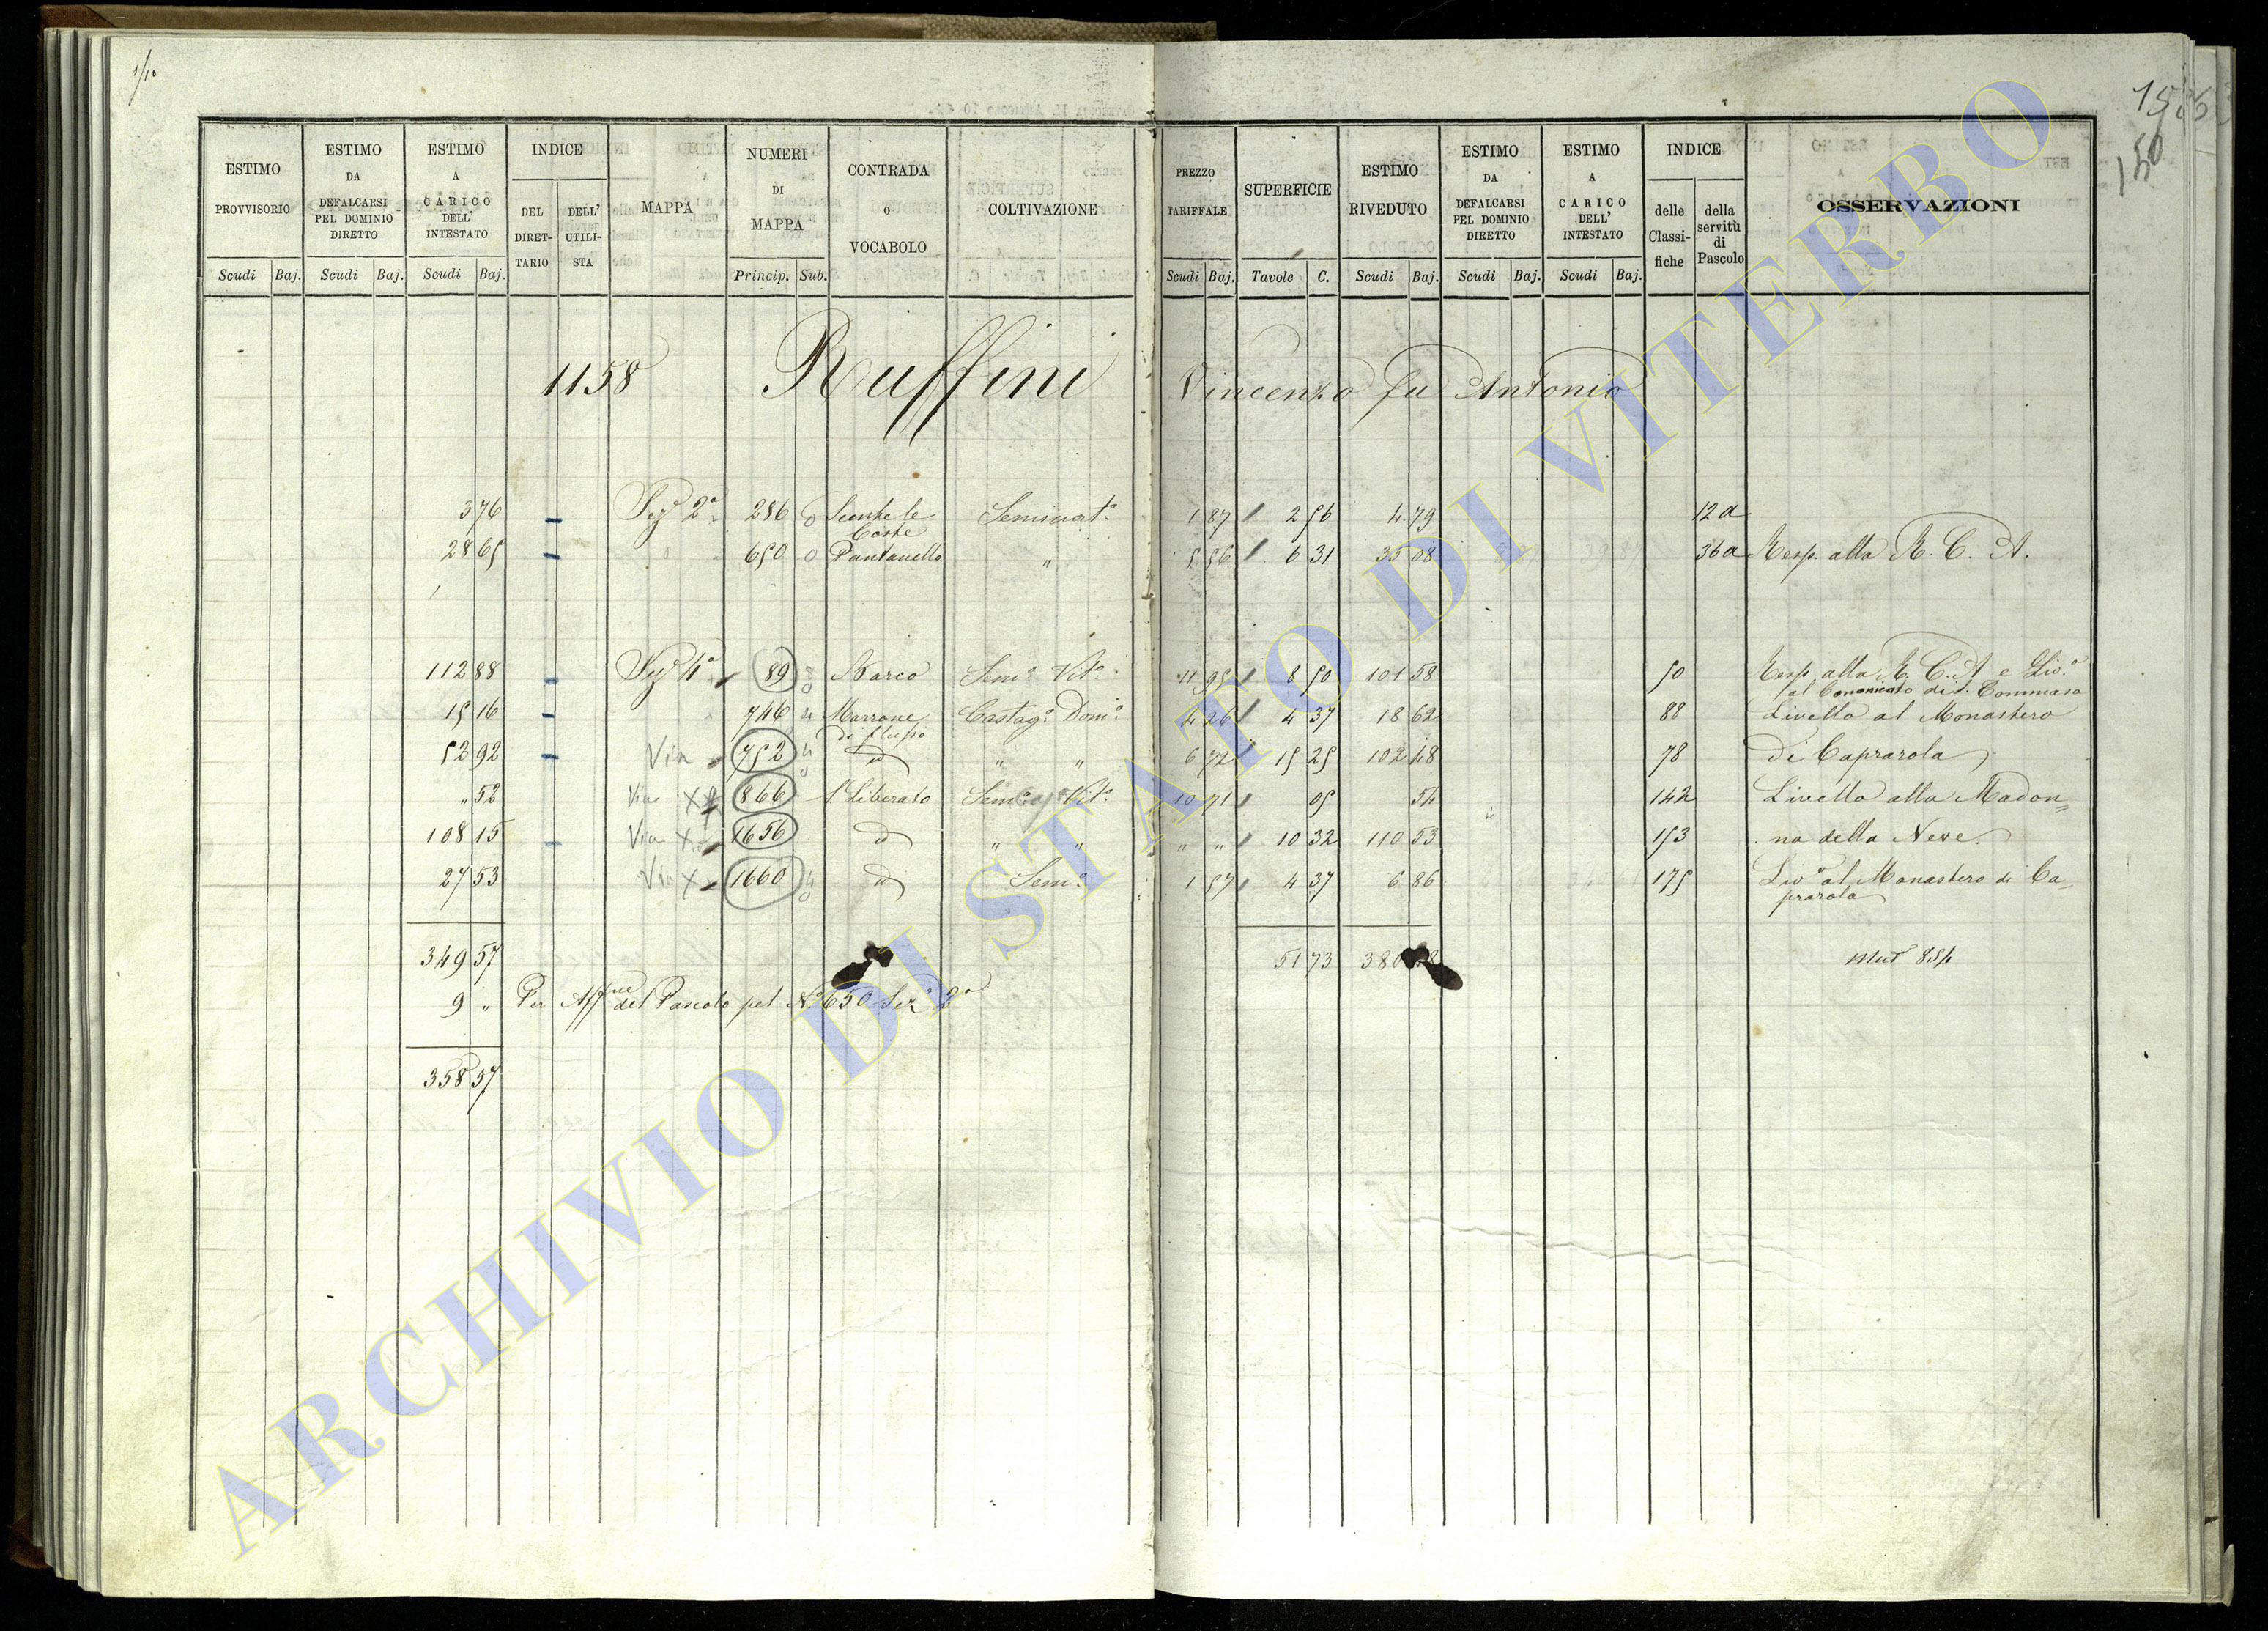 1/10
1586
150
ESTIMO PROVVISORIO
ESTIMO DA DEFALCARSI PEL DOMINIO DIRETTO
ESTIMO A CARICO DELL' INTESTATO
INDICE
DEL DIRET-TARIO
DELL' UTILI-STA
MAPPA
NUMERI DI MAPPA
CONTRADA O VOCABOLO
COLTIVAZIONE
PREZZO TARIFFALE
SUPERFICIE
ESTIMO RIVEDUTO
ESTIMO DA DEFALCARSI PEL DOMINIO DIRETTO
ESTIMO A CARICO DELL' INTESTATO
INDICE
delle Classi-fiche
della servitù di Pascolo
OSSERVAZIONI
Scudi Baj. Scudi Baj. Scudi Baj. Princip. Sub. Scudi Baj. Tavole C. Scudi Baj. Scudi Baj. Scudi Baj.
1158 Ruffini Vincenzo fu Antonio
3 76 Sez.e 2a 286 Seminat.o 1 87 2 56 4 79 12a
Coste
28 65 " 650 Pantanello " 5 56 6 31 35 08 36a Resp. alla R. C. A.
112 88 Sez.e 4a 89 Marco Sem.o Vit.o 11 95 8 50 101 58 50 Resp. alla R. C. A e Liv.o
al Canonicato di S. Tommaso
15 16 746 4 Marrone Castag.o Dom.o 4 26 4 37 18 62 88 Livello al Monastero
53 92 Via 752 " " 6 72 15 25 102 48 78 di Caprarola
" 52 Via X 866 S. Liberato Sem.o Vit.o 10 71 05 54 142 Livello alla Madon=
108 15 Via X 1656 " " " " 10 32 110 53 153 na della Neve.
27 53 Via X 1660 Sem.o 1 57 4 37 6 86 175 Liv.o al Monastero di Ca=
prarola
349 57 51 73 380 Mut 884
9 " Per Aff.ne del Pascolo pel No 650 Sez.e 2a
358 57
ARCHIVIO DI STATO DI VITERBO